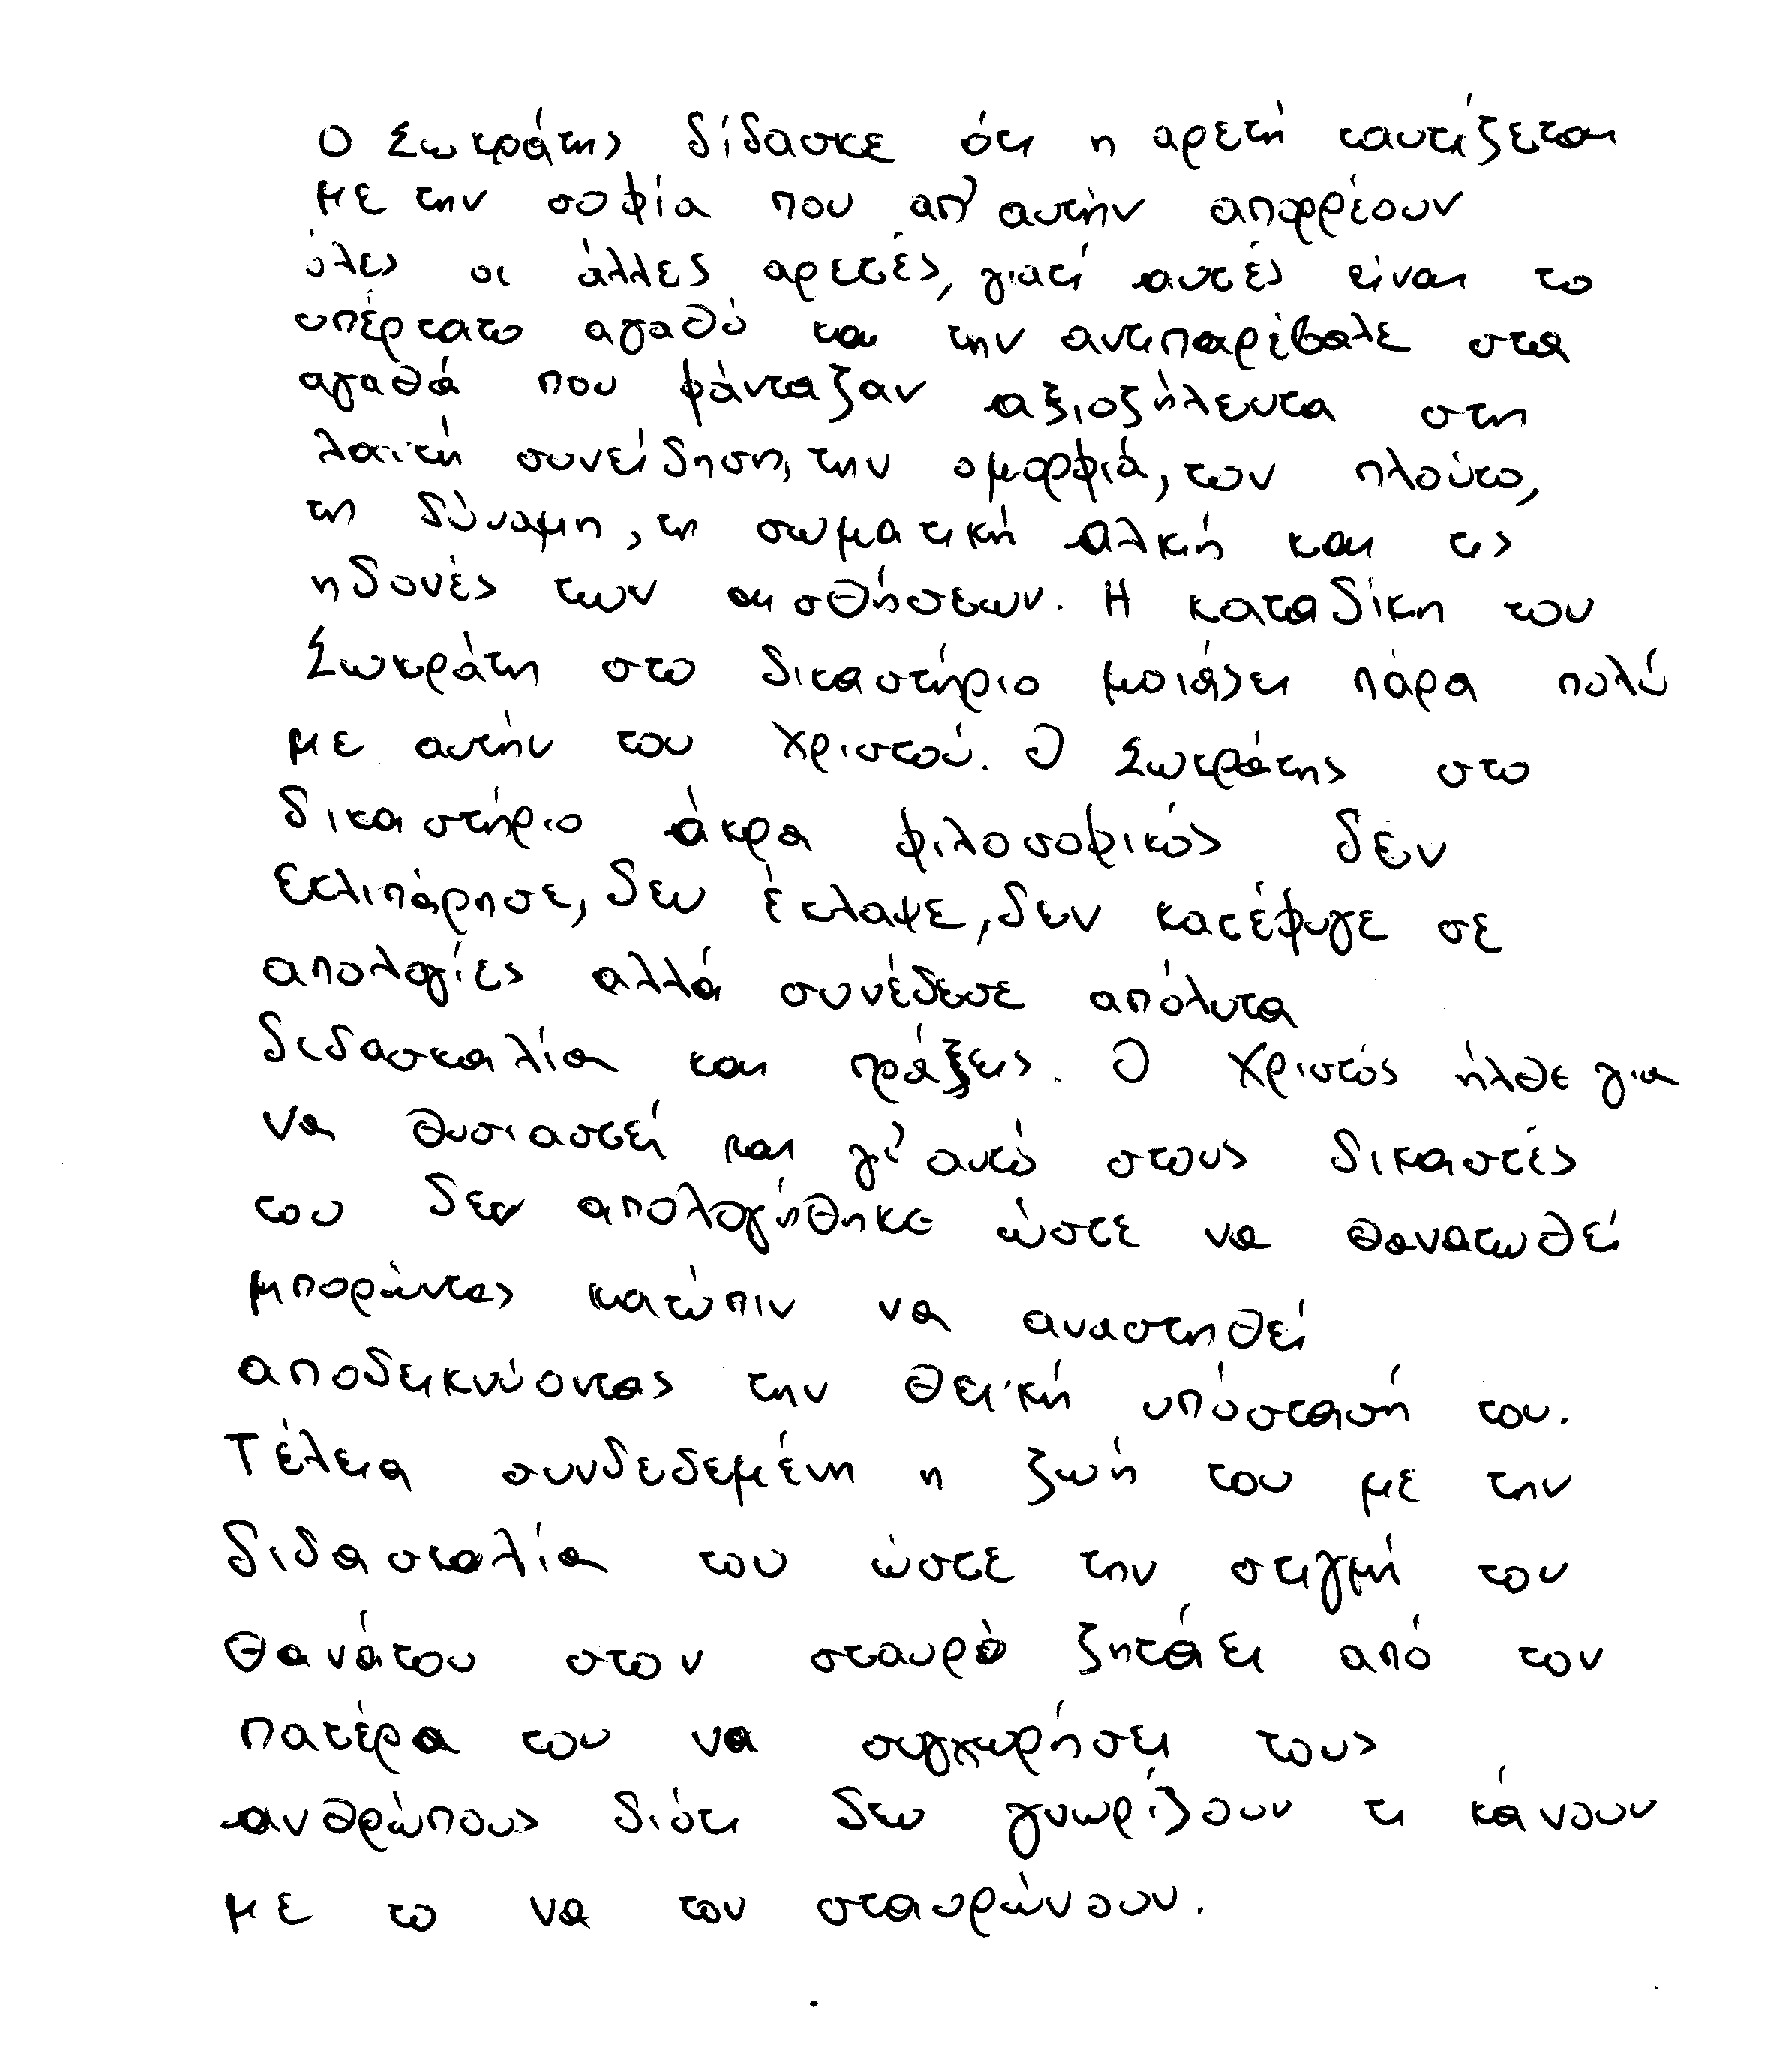 Ο Σωκράτης δίδασκε ότι η αρετή ταυτίζεται
με την σοφία που απ' αυτήν απορρέουν
όλες οι άλλες αρετές, γιατί αυτές είναι το
υπέρτατο αγαθό και την αντιπαρέβαλε στα
αγαθά που φάνταζαν αξιοζήλευτα στη
λαϊκή συνείδηση, την ομορφιά, τον πλούτο,
τη δύναμη, τη σωματική αλκή και τις
ηδονές των αισθήσεων. Η καταδίκη του
Σωκράτη στο δικαστήριο μοιάζει πάρα πολύ
με αυτήν του Χριστού. Ο Σωκράτης στο
δικαστήριο άκρα φιλοσοφικός δεν
εκλιπάρησε, δεν έκλαψε, δεν κατέφυγε σε
απολογίες αλλά συνέδεσε απόλυτα
διδασκαλία και πράξεις. Ο Χριστός ήλθε για
να θυσιαστεί και γι' αυτό στους δικαστές
του δεν απολογήθηκε ώστε να θανατωθεί
μπορώντας κατόπιν να αναστηθεί
αποδεικνύοντας την θεϊκή υπόστασή του.
Τέλεια συνδεδεμένη η ζωή του με την
διδασκαλία του ώστε την στιγμή του
θανάτου στον σταυρό ζητάει από τον
πατέρα του να συγχωρήσει τους
ανθρώπους διότι δεν γνωρίζουν τι κάνουν
με το να τον σταυρώνουν.